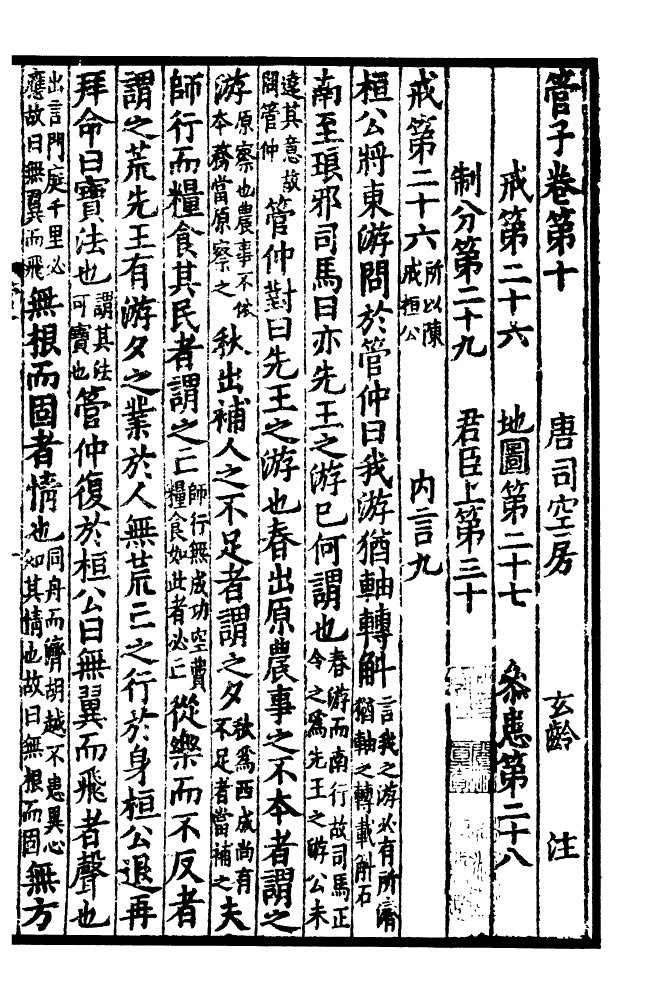 管子卷第十 唐司空房 玄齡 注
戒第二十六 地圖第二十七 叅患第二十八
制分第二十九 君臣上第三十
戒第二十六所以陳戒桓公 内言九
桓公將東游問於管仲曰我游猶軸轉斛言我之游必有所濟猶軸之轉載斛石
南至琅邪司馬曰亦先王之游已何謂也春游而南行故司馬正令之為先王之游公未
達其意故問管仲管仲對曰先王之游也春出原農事之不本者謂之
游原察也農事不依本務當原察之秋出補人之不足者謂之夕秋爲西成尚有不足者當補之夫
師行而糧食其民者謂之亡師行無成功空費糧食如此者必亡從樂而不反者
謂之荒先王有游夕之業於人無荒亡之行於身桓公退再
拜命曰寶法也謂其法可寶也管仲復於桓公曰無翼而飛者聲也
出言門庭千里必應故曰無翼而飛無根而固者情也同舟而濟胡越不患異心如其情也故曰無根而固無方